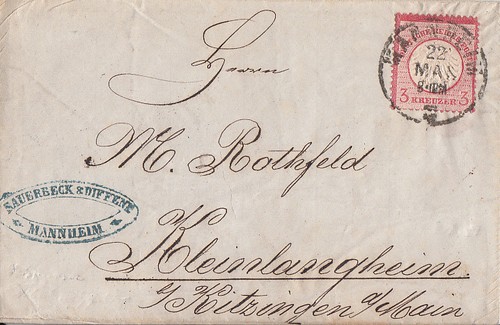 Herrn
M. Rothfeld
Kleinlangheim
b/Kitzingen a/Main
SAUERBECK & DIFFENÉ
MANNHEIM
MANNHEIM
22
MAI
3 KREUZER 3